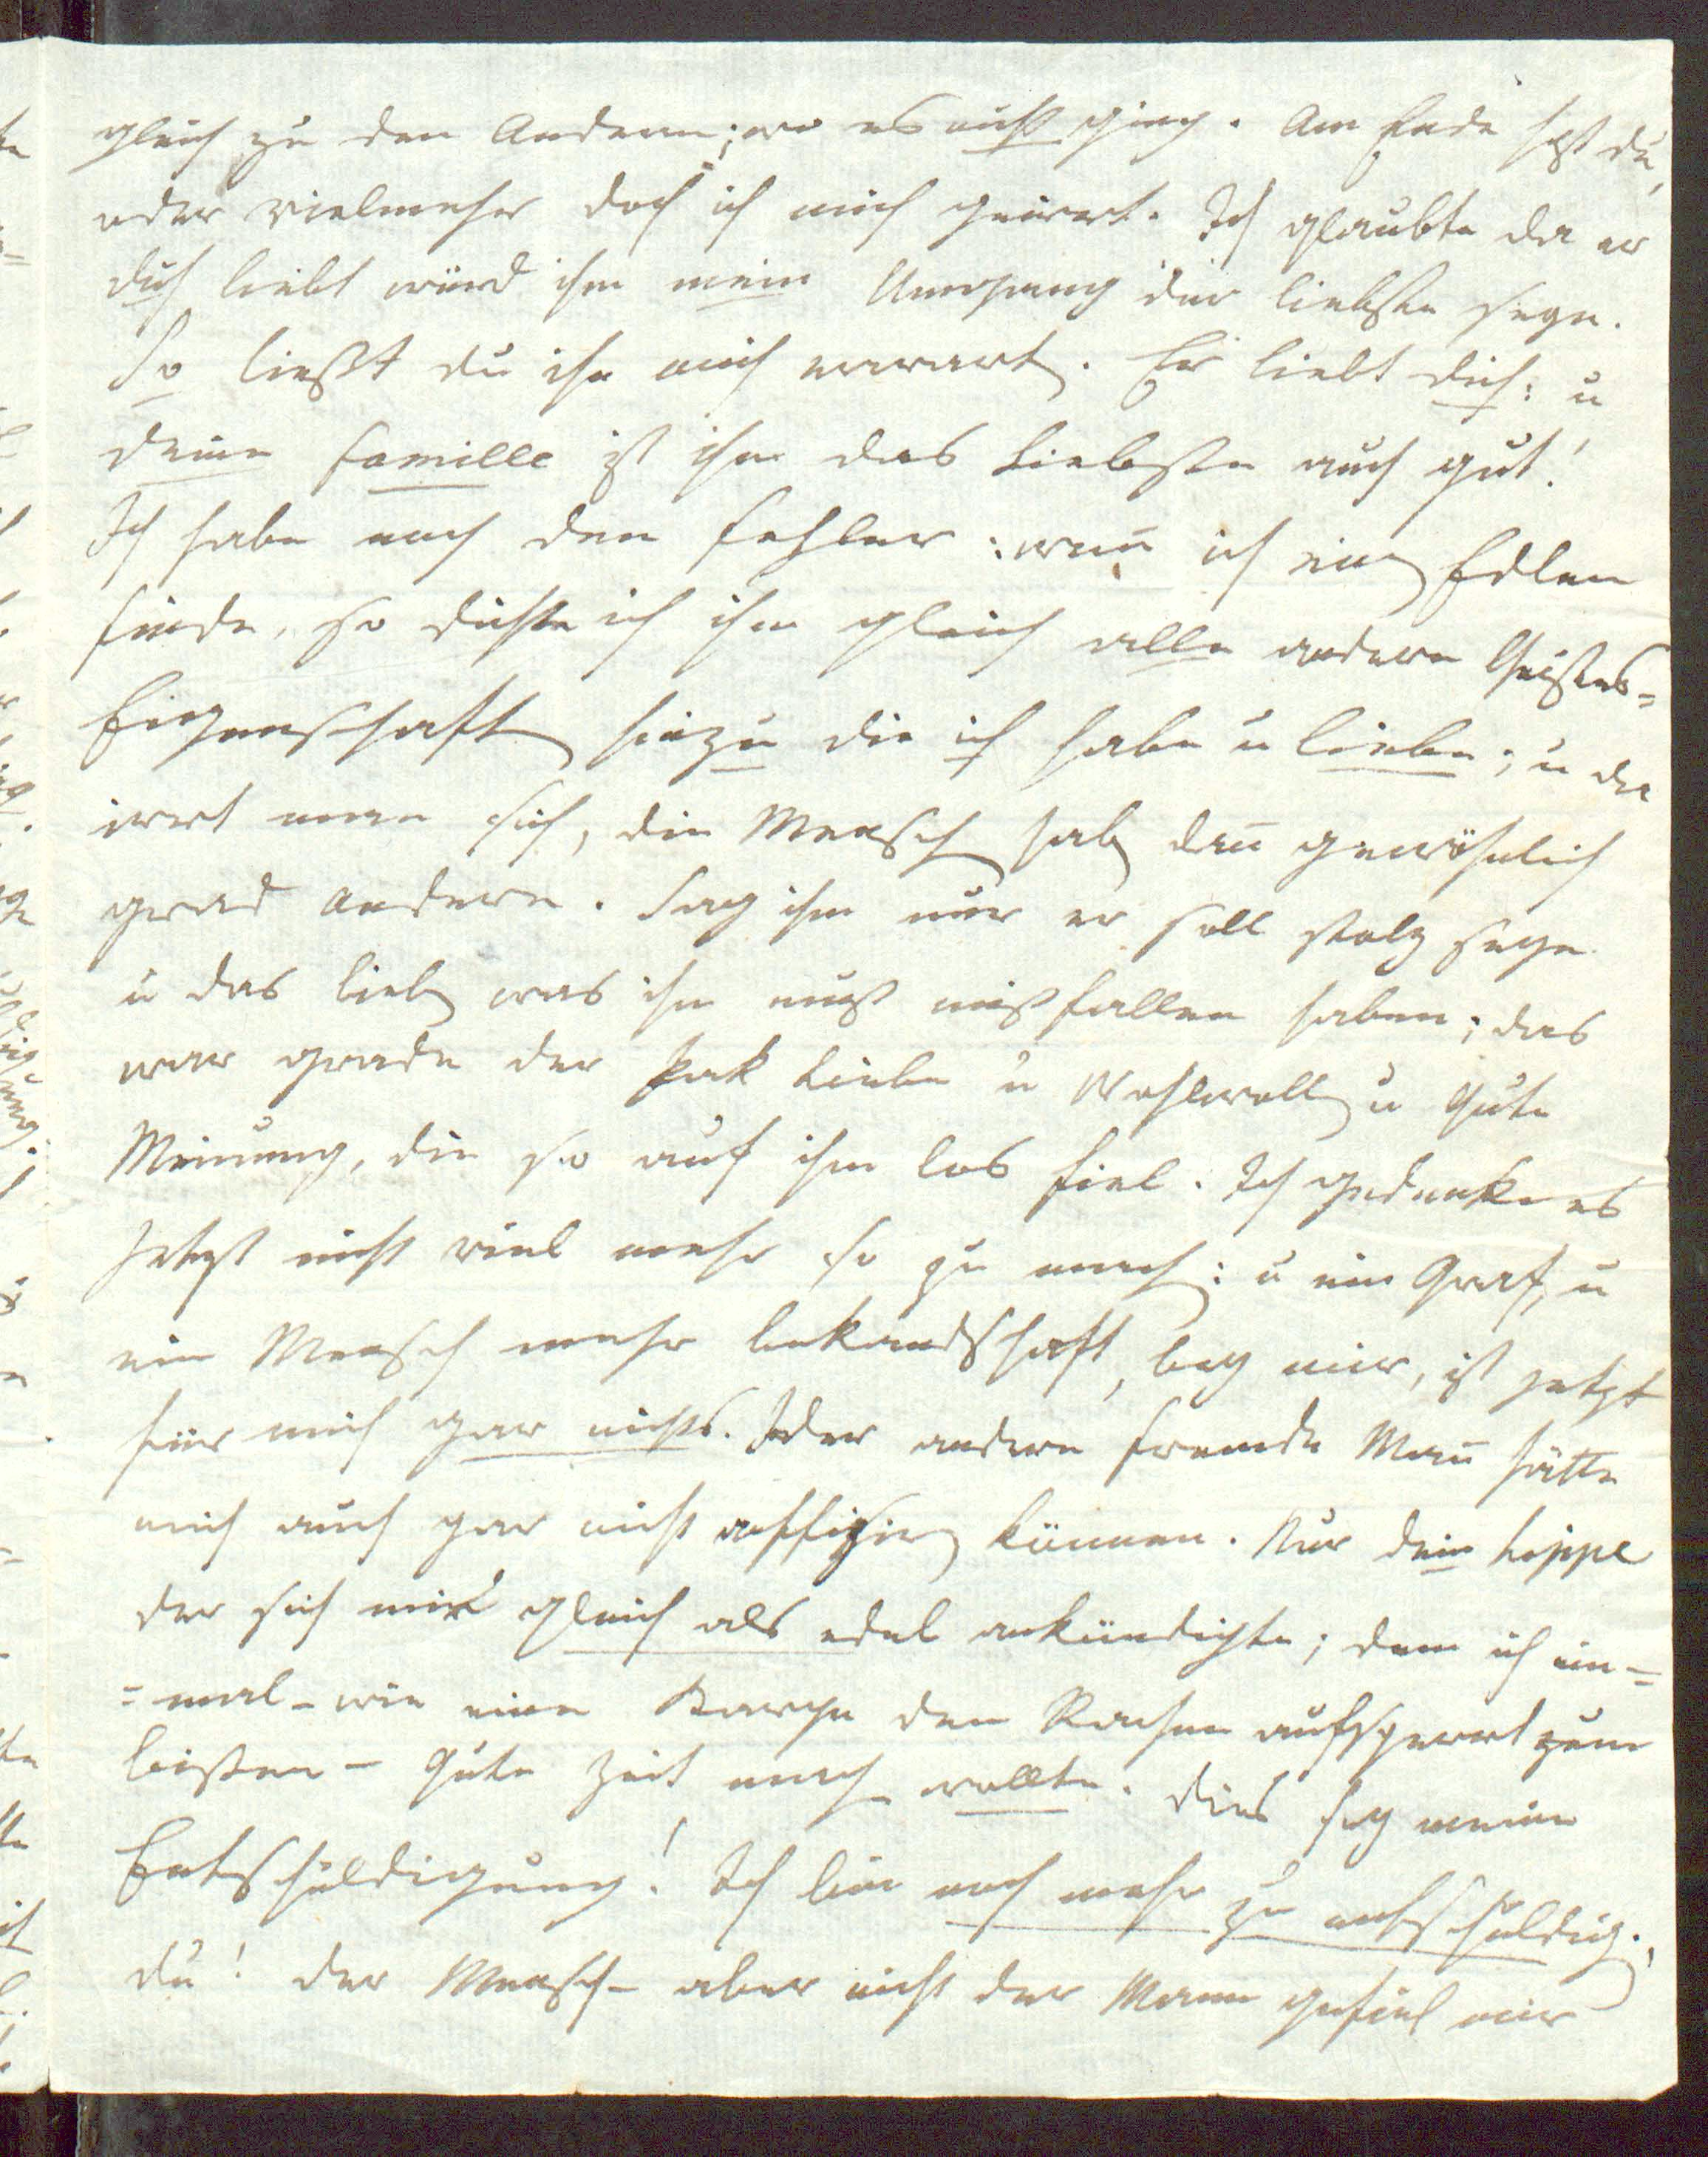 gleich zu den Andern; wo es nicht ging. Am Ende hast du,
oder vielmehr doch ich mich geirrt. Ich glaubte da er
dich liebt würd ihm mein Umgang der liebste seyn.
So ließt du ihn mich erwarten. Er liebt dich: u
deine famille ist ihm das Liebste auch gut!
Ich habe noch den Fehler: wen̄ ich einen Edlen
finde, so dichte ich ihm gleich alle andern Geistes=
Eigenschaften hinzu die ich habe u liebe; u da
irrt man sich, die Menschen haben dan̄ gewöhnlich
grad andere. Sag ihm nur er soll stolz seyn
u das lieben was ihm muß mißfallen haben; das
war grade der Pak Liebe u Wohlwollen u gute
Meinung, die so auf ihm los fiel. Ich gedenke es
Jetzt nicht viel mehr so zu machen: u ein Graf, u
ein Mensch mehr bekandschaft, bey mir, ist jetzt
für mich gar nichts. Jeder andere fremde Man̄ hätte
mich auch gar nicht affiziren können. Nur dein Lippe
der sich mir gleich als edel ankündigte; dem ich ein=
=mal – wie eine den Rachen aufsperrt zum
beißen – gute Zeit machen wollte. Dies sey meine
Entschuldigung! Ich bin noch mehr zu entschuldigen.
du! der Mensch – aber nicht der Mann gefiel mir